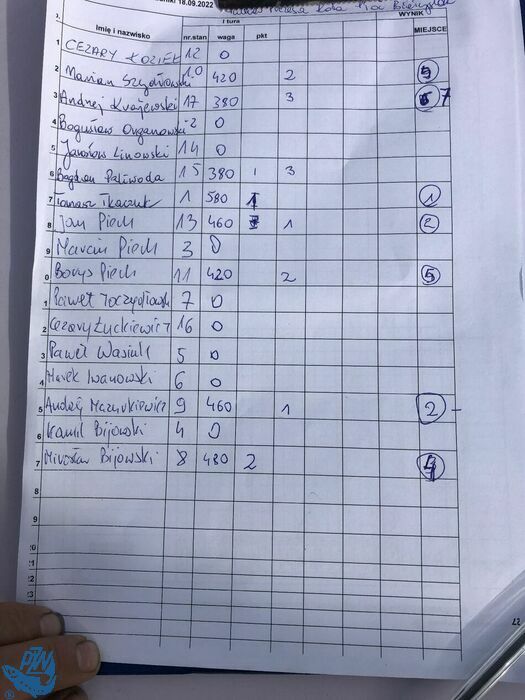 18.09.2022
I tura WYNIK
Imię i nazwisko nr.stan waga pkt MIEJSCE
1 CEZARY KOZIEŁ 12 0
2 Marian Szydłowski 10 420 2 5
3 Andrzej Krajewski 17 380 3 7
4 Bogusław Organowski 2 0
5 Jarosław Linowski 14 0
6 Bogdan Paliwoda 15 380 1 3
7 Tomasz Tkaczuk 1 580 1 1
8 Jan Piech 13 460 1 2
9 Marcin Piech 3 0
0 Borys Piech 11 420 2 5
1 Paweł 7 0
2 Cezary Łuckiewicz 16 0
3 Paweł Wasiuk 5 0
4 Marek Iwanowski 6 0
5 Andrzej Mazurkiewicz 9 460 1 2 -
6 Kamil Bijowski 4 0
7 Mirosław Bijowski 8 480 2 4
8
9
20
21
22
23
PZW